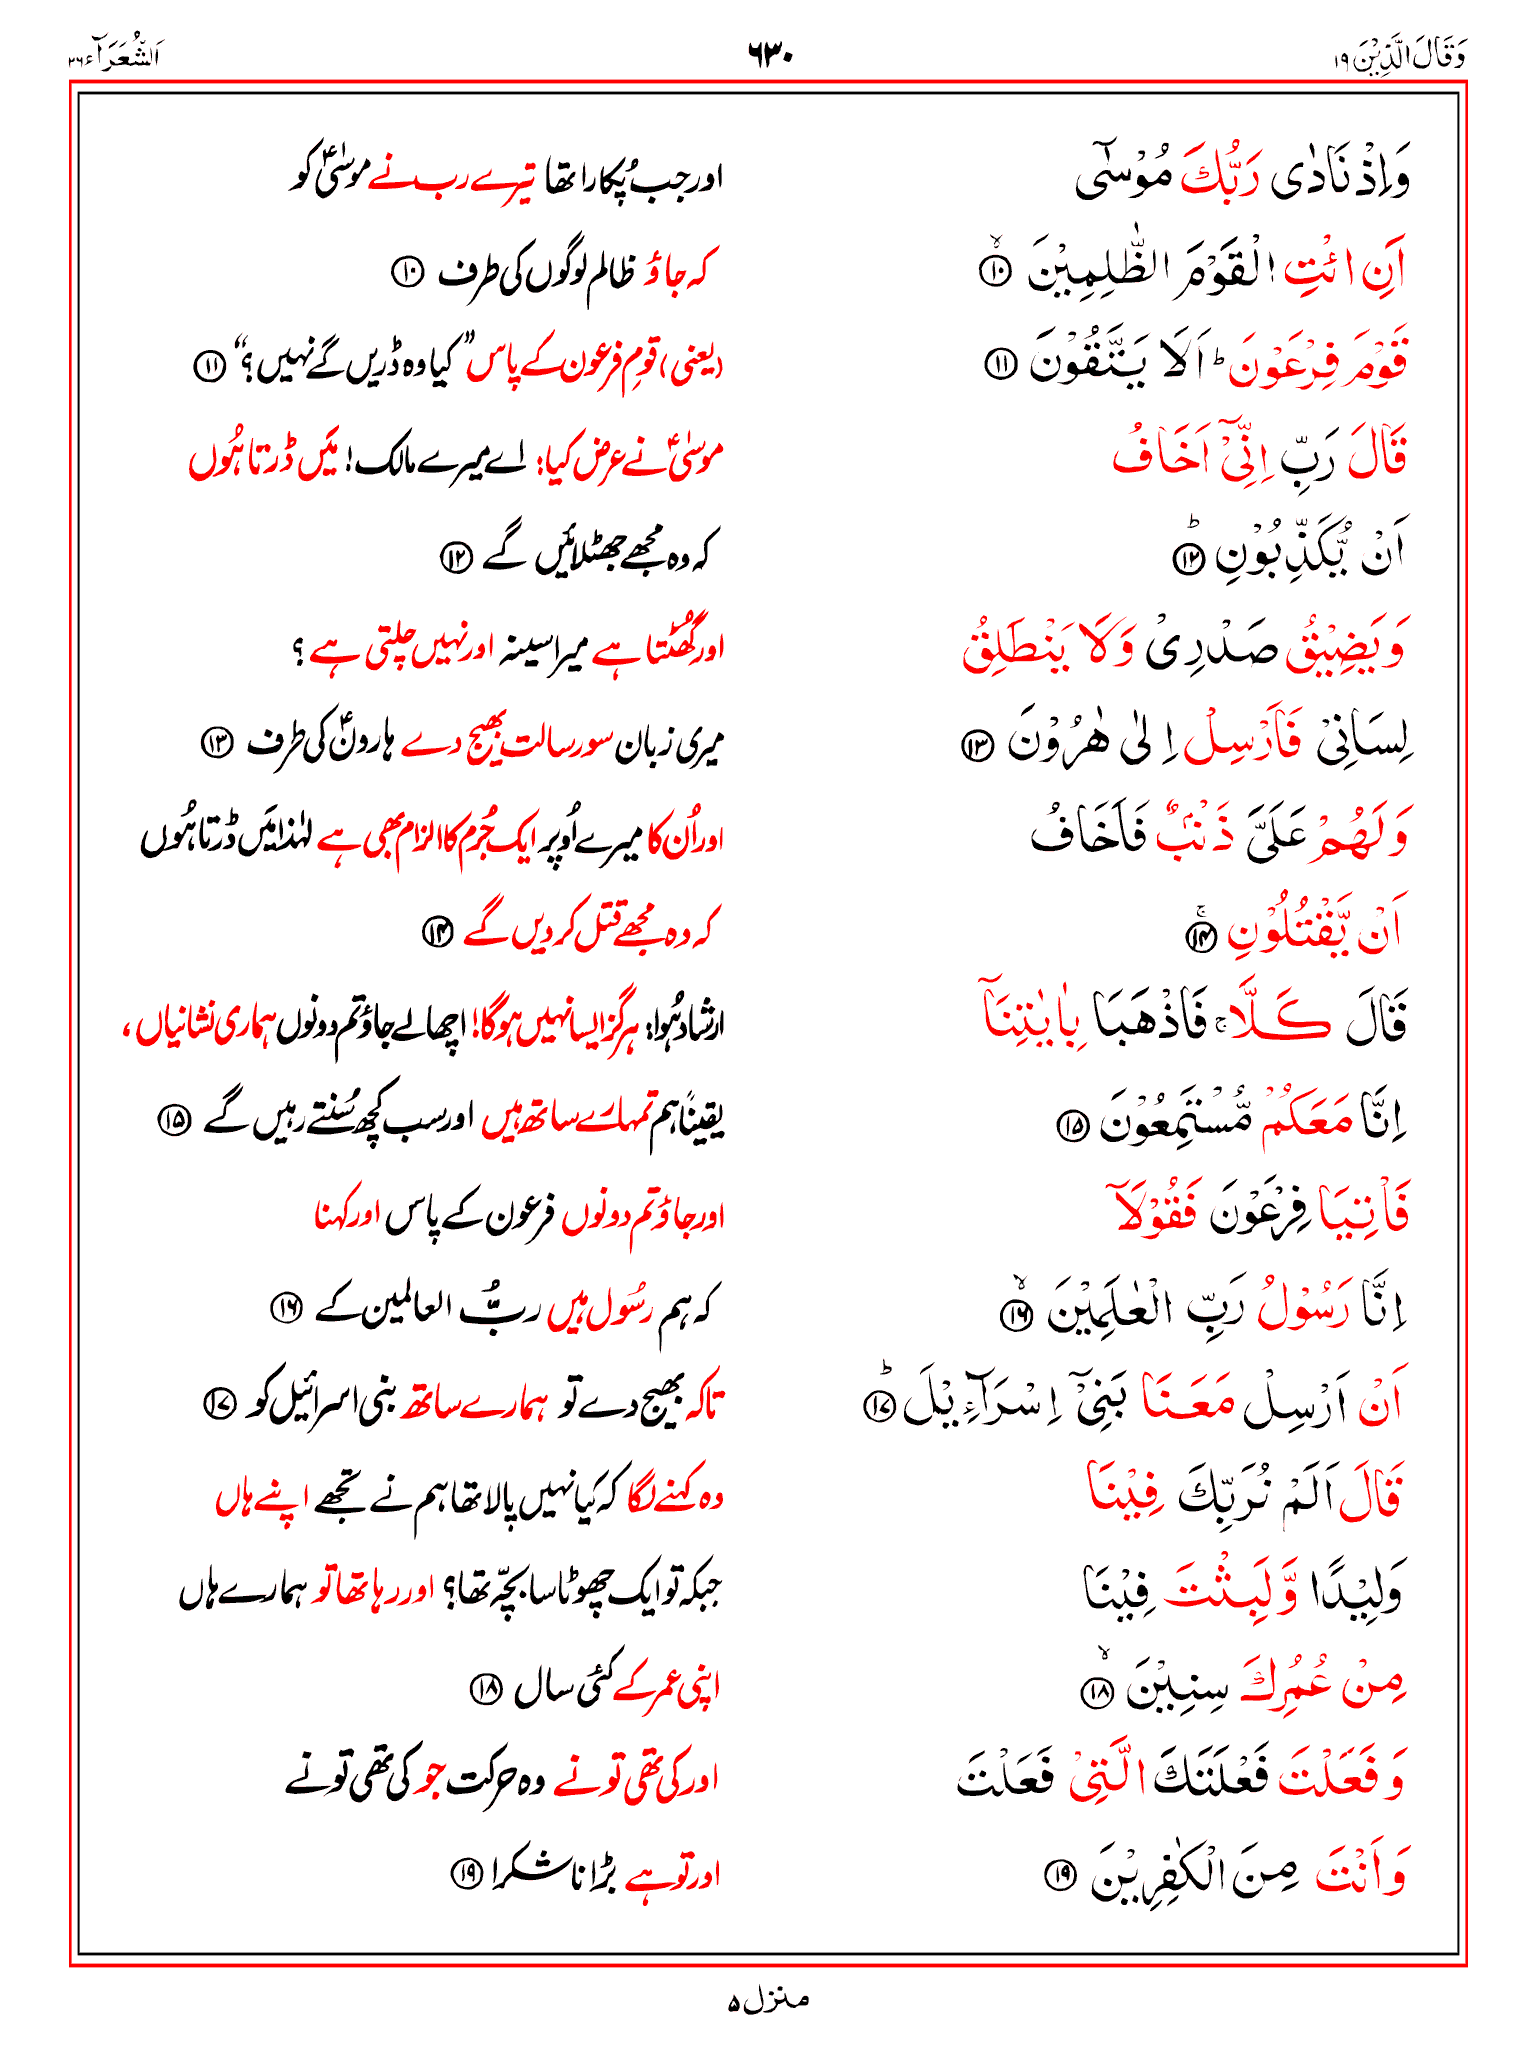 وَقَالَ الَّذِيْنَ ۱۹ ۶۳۰ اَلشُّعَرَآء ۲۶
وَاِذْ نَادٰى رَبُّكَ مُوْسٰٓى اور جب پُکارا تھا تیرے رب نے موسیٰؑ کو
اَنِ ائْتِ الْقَوْمَ الظّٰلِمِيْنَ ۙ﴿۱۰﴾ کہ جاؤ ظالم لوگوں کی طرف ﴿۱۰﴾
قَوْمَ فِرْعَوْنَ ؕ اَلَا يَتَّقُوْنَ ﴿۱۱﴾ (یعنی) قومِ فرعون کے پاس ”کیا وہ ڈریں گے نہیں؟“ ﴿۱۱﴾
قَالَ رَبِّ اِنِّىْٓ اَخَافُ موسیٰؑ نے عرض کیا: اے میرے مالک! مَیں ڈرتا ہُوں
اَنْ يُّكَذِّبُوْنِ ؕ﴿۱۲﴾ کہ وہ مجھے جھٹلائیں گے ﴿۱۲﴾
وَيَضِيْقُ صَدْرِىْ وَلَا يَنْطَلِقُ اور گھُٹتا ہے میرا سینہ اور نہیں چلتی ہے ؟
لِسَانِىْ فَاَرْسِلْ اِلٰى هٰرُوْنَ ﴿۱۳﴾ میری زبان سو رسالت بھیج دے ہارونؑ کی طرف ﴿۱۳﴾
وَلَهُمْ عَلَىَّ ذَنْۢبٌ فَاَخَافُ اور اُن کا میرے اُوپر ایک جُرم کا الزام بھی ہے لہٰذا مَیں ڈرتا ہُوں
اَنْ يَّقْتُلُوْنِ ۚ﴿۱۴﴾ کہ وہ مجھے قتل کر دیں گے ﴿۱۴﴾
قَالَ كَلَّا ۚ فَاذْهَبَا بِاٰيٰتِنَآ ارشاد ہُوا: ہرگز ایسا نہیں ہوگا! اچھا لے جاؤ تم دونوں ہماری نشانیاں ،
اِنَّا مَعَكُمْ مُّسْتَمِعُوْنَ ﴿۱۵﴾ یقیناً ہم تمہارے ساتھ ہیں اور سب کچھ سُنتے رہیں گے ﴿۱۵﴾
فَاْتِيَا فِرْعَوْنَ فَقُوْلَآ اور جاؤ تم دونوں فرعون کے پاس اور کہنا
اِنَّا رَسُوْلُ رَبِّ الْعٰلَمِيْنَ ۙ﴿۱۶﴾ کہ ہم رسُول ہیں ربُّ العالمین کے ﴿۱۶﴾
اَنْ اَرْسِلْ مَعَنَا بَنِىْٓ اِسْرَآءِيْلَ ؕ﴿۱۷﴾ تاکہ بھیج دے تو ہمارے ساتھ بنی اسرائیل کو ﴿۱۷﴾
قَالَ اَلَمْ نُرَبِّكَ فِيْنَا وہ کہنے لگا کہ کیا نہیں پالا تھا ہم نے تجھے اپنے ہاں
وَلِيْدًا وَّلَبِثْتَ فِيْنَا جبکہ تو ایک چھوٹا سا بچّہ تھا؟ اور رہا تھا تو ہمارے ہاں
مِنْ عُمُرِكَ سِنِيْنَ ۙ﴿۱۸﴾ اپنی عمر کے کئی سال ﴿۱۸﴾
وَفَعَلْتَ فَعْلَتَكَ الَّتِىْ فَعَلْتَ اور کی تھی تو نے وہ حرکت جو کی تھی تو نے
وَاَنْتَ مِنَ الْكٰفِرِيْنَ ﴿۱۹﴾ اور تو ہے بڑا ناشکرا ﴿۱۹﴾
منزل ۵